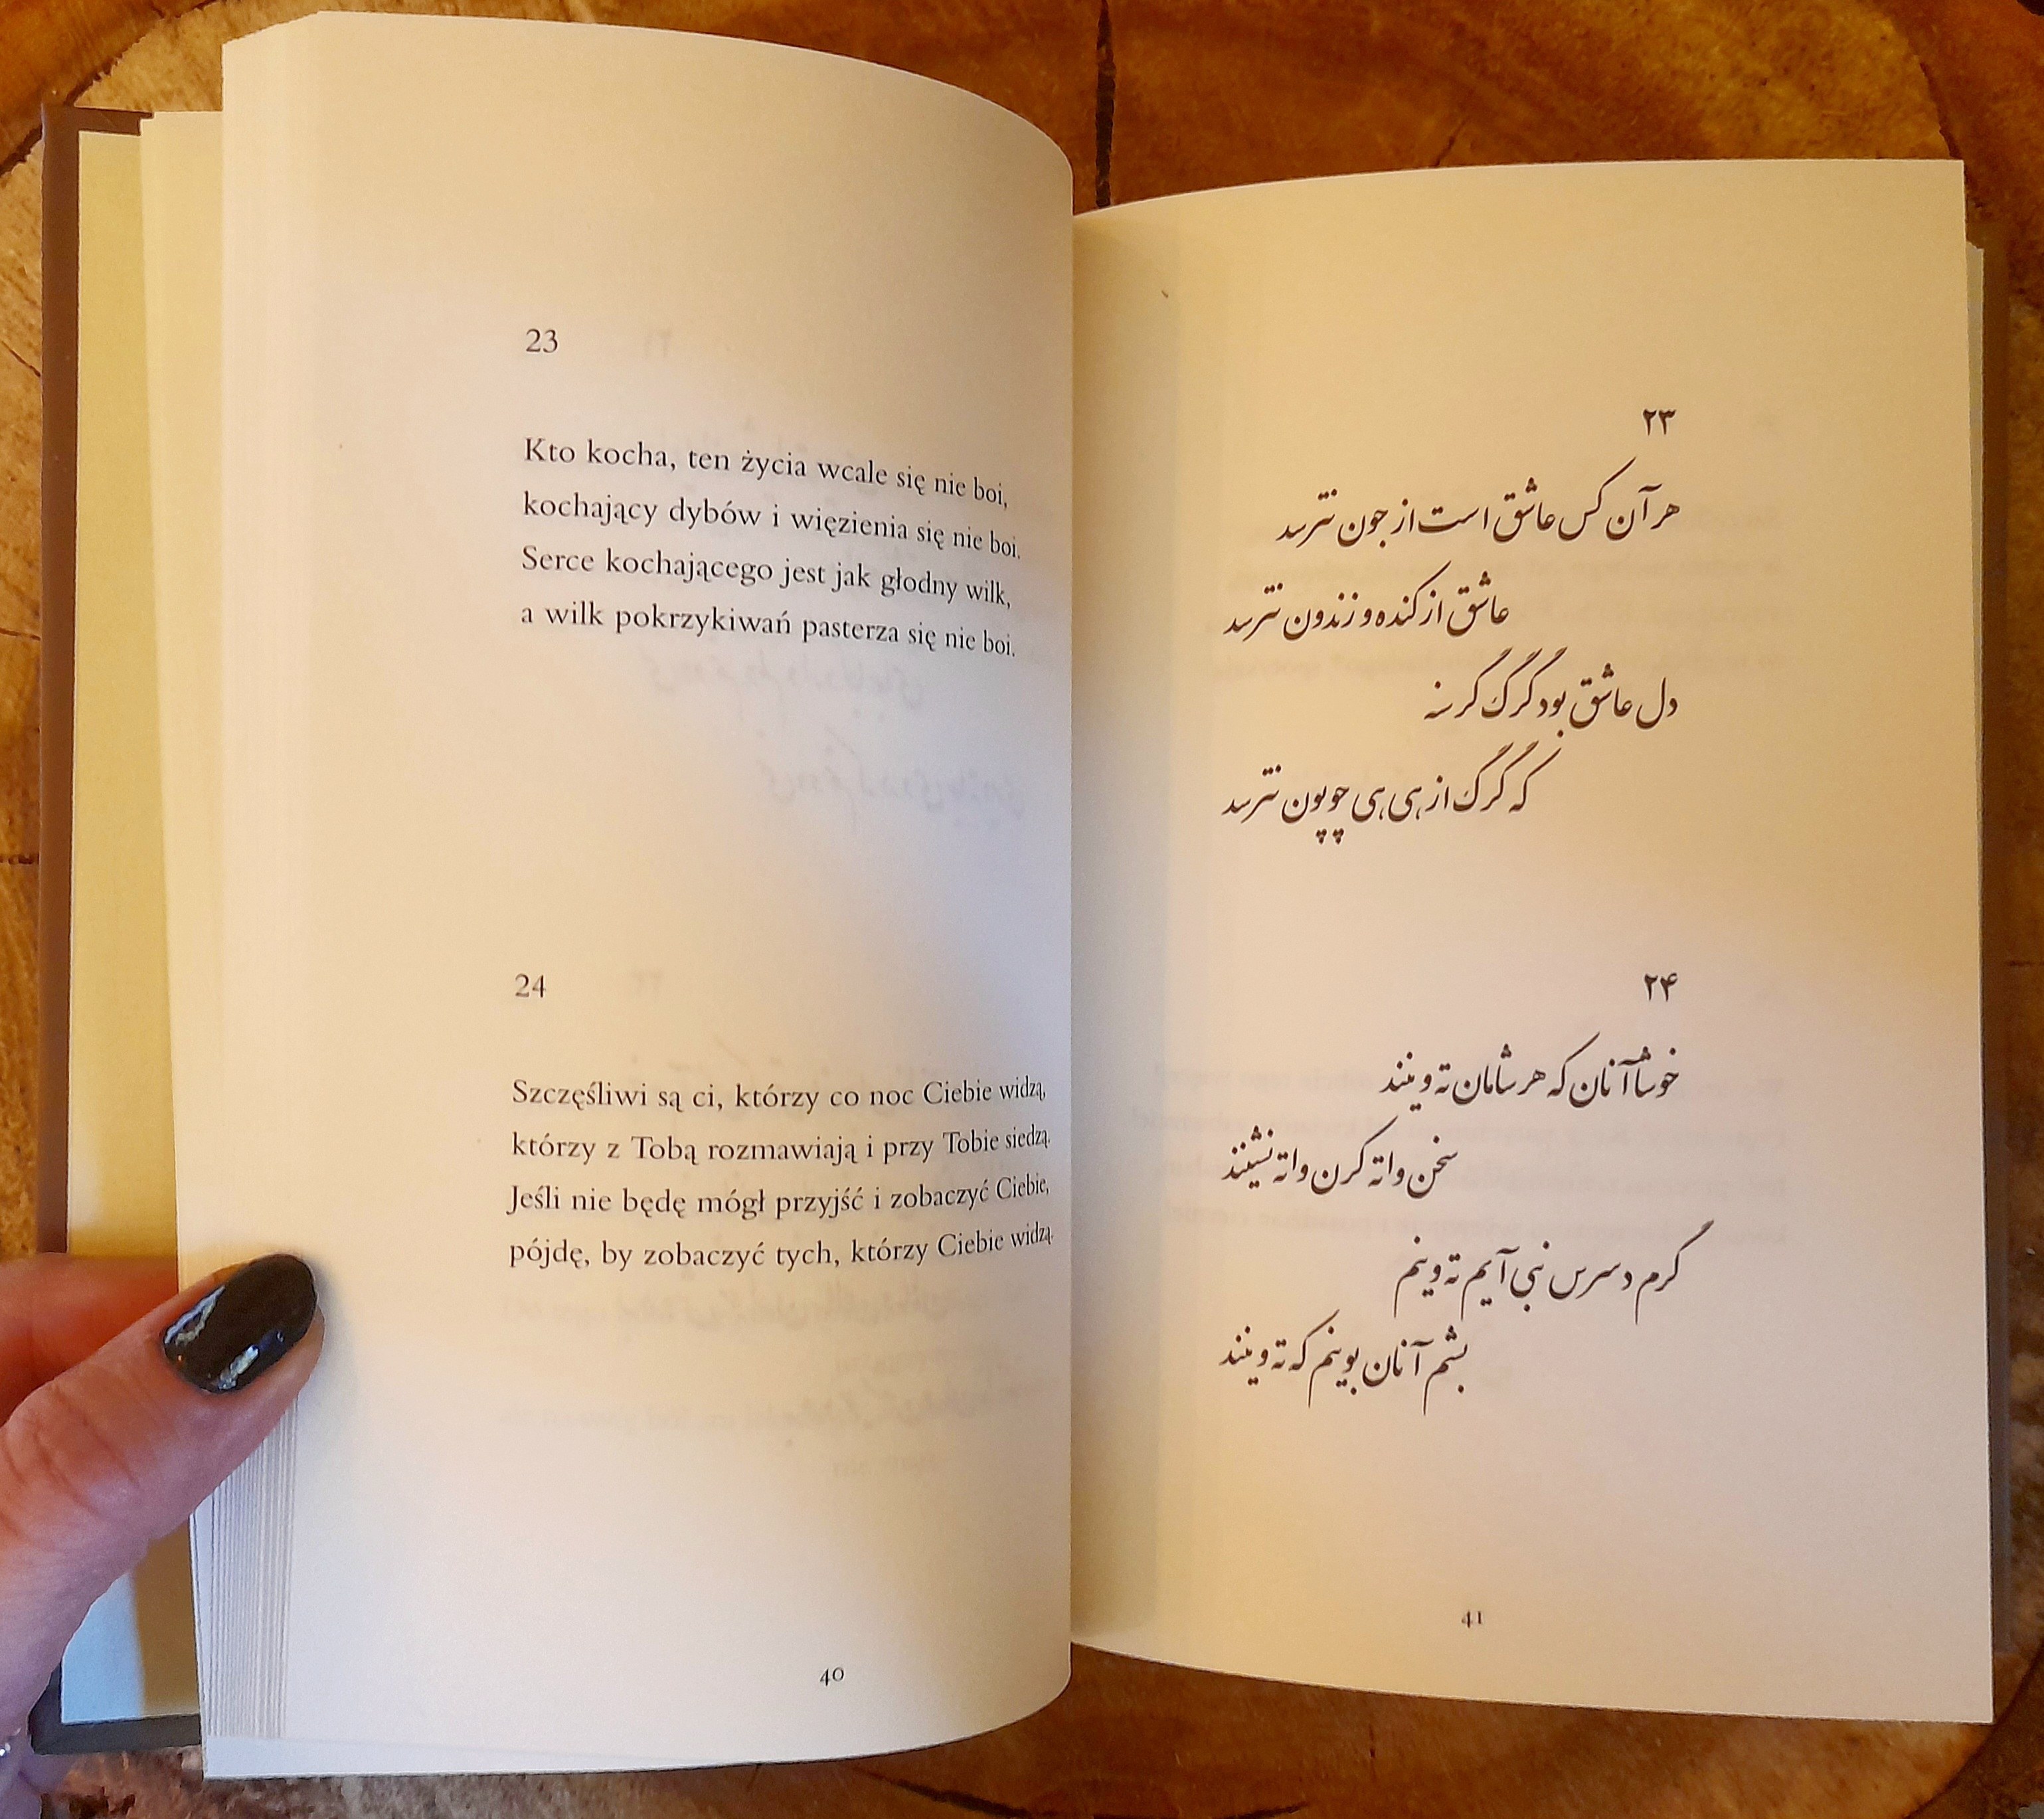 23
Kto kocha, ten życia wcale się nie boi,
kochający dybów i więzienia się nie boi.
Serce kochającego jest jak głodny wilk,
a wilk pokrzykiwań pasterza się nie boi.
24
Szczęśliwi są ci, którzy co noc Ciebie widzą,
którzy z Tobą rozmawiają i przy Tobie siedzą.
Jeśli nie będę mógł przyjść i zobaczyć Ciebie,
pójdę, by zobaczyć tych, którzy Ciebie widzą.
40
۲۳
هر آن کس عاشق است از جون نترسد
عاشق از کنده و زندون نترسد
دل عاشق بود گرگ گرسنه
که گرگ از هی هی چوپون نترسد
۲۴
خوشا آنان که هر شامان ته وینند
سخن واته کرن واته نشینند
گرم دسرس نبی آیم ته وینم
بشم آنان بوینم که ته وینند
41